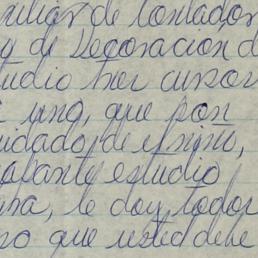 xiliar de Contador
y de Decoración d
tudio por cursos
e uno, que son
uidados de niños,
adante estudio
ina, le doy todo
ro que usted debe